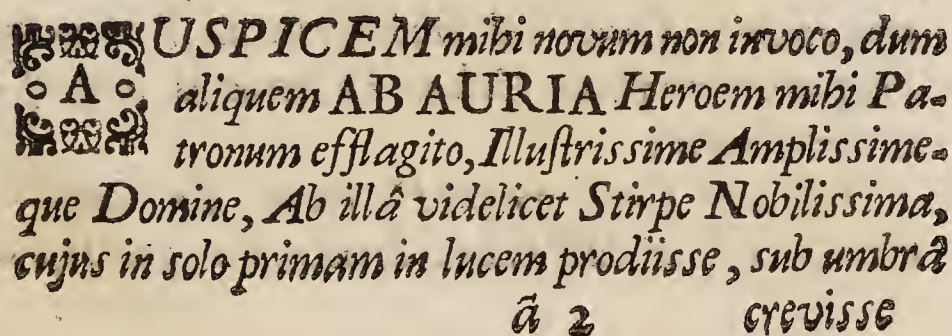 AUSPICEM mihi novum non invoco, dum
aliquem AB AURIA Heroem mihi Pa-
tronum efflagito, Illustrissime Amplissime-
que Domine, Ab illâ videlicet Stirpe Nobilissima,
cujus in solo primam in lucem prodiisse, sub umbrâ
ã 2 crevisse